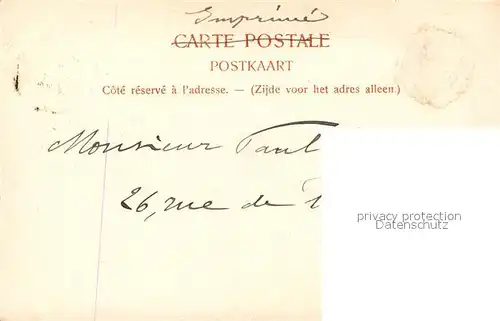 Imprimé
CARTE POSTALE
POSTKAART
Côté réservé à l'adresse. — (Zijde voor het adres alleen.)
Monsieur Paul
26, rue de
privacy protection
Datenschutz